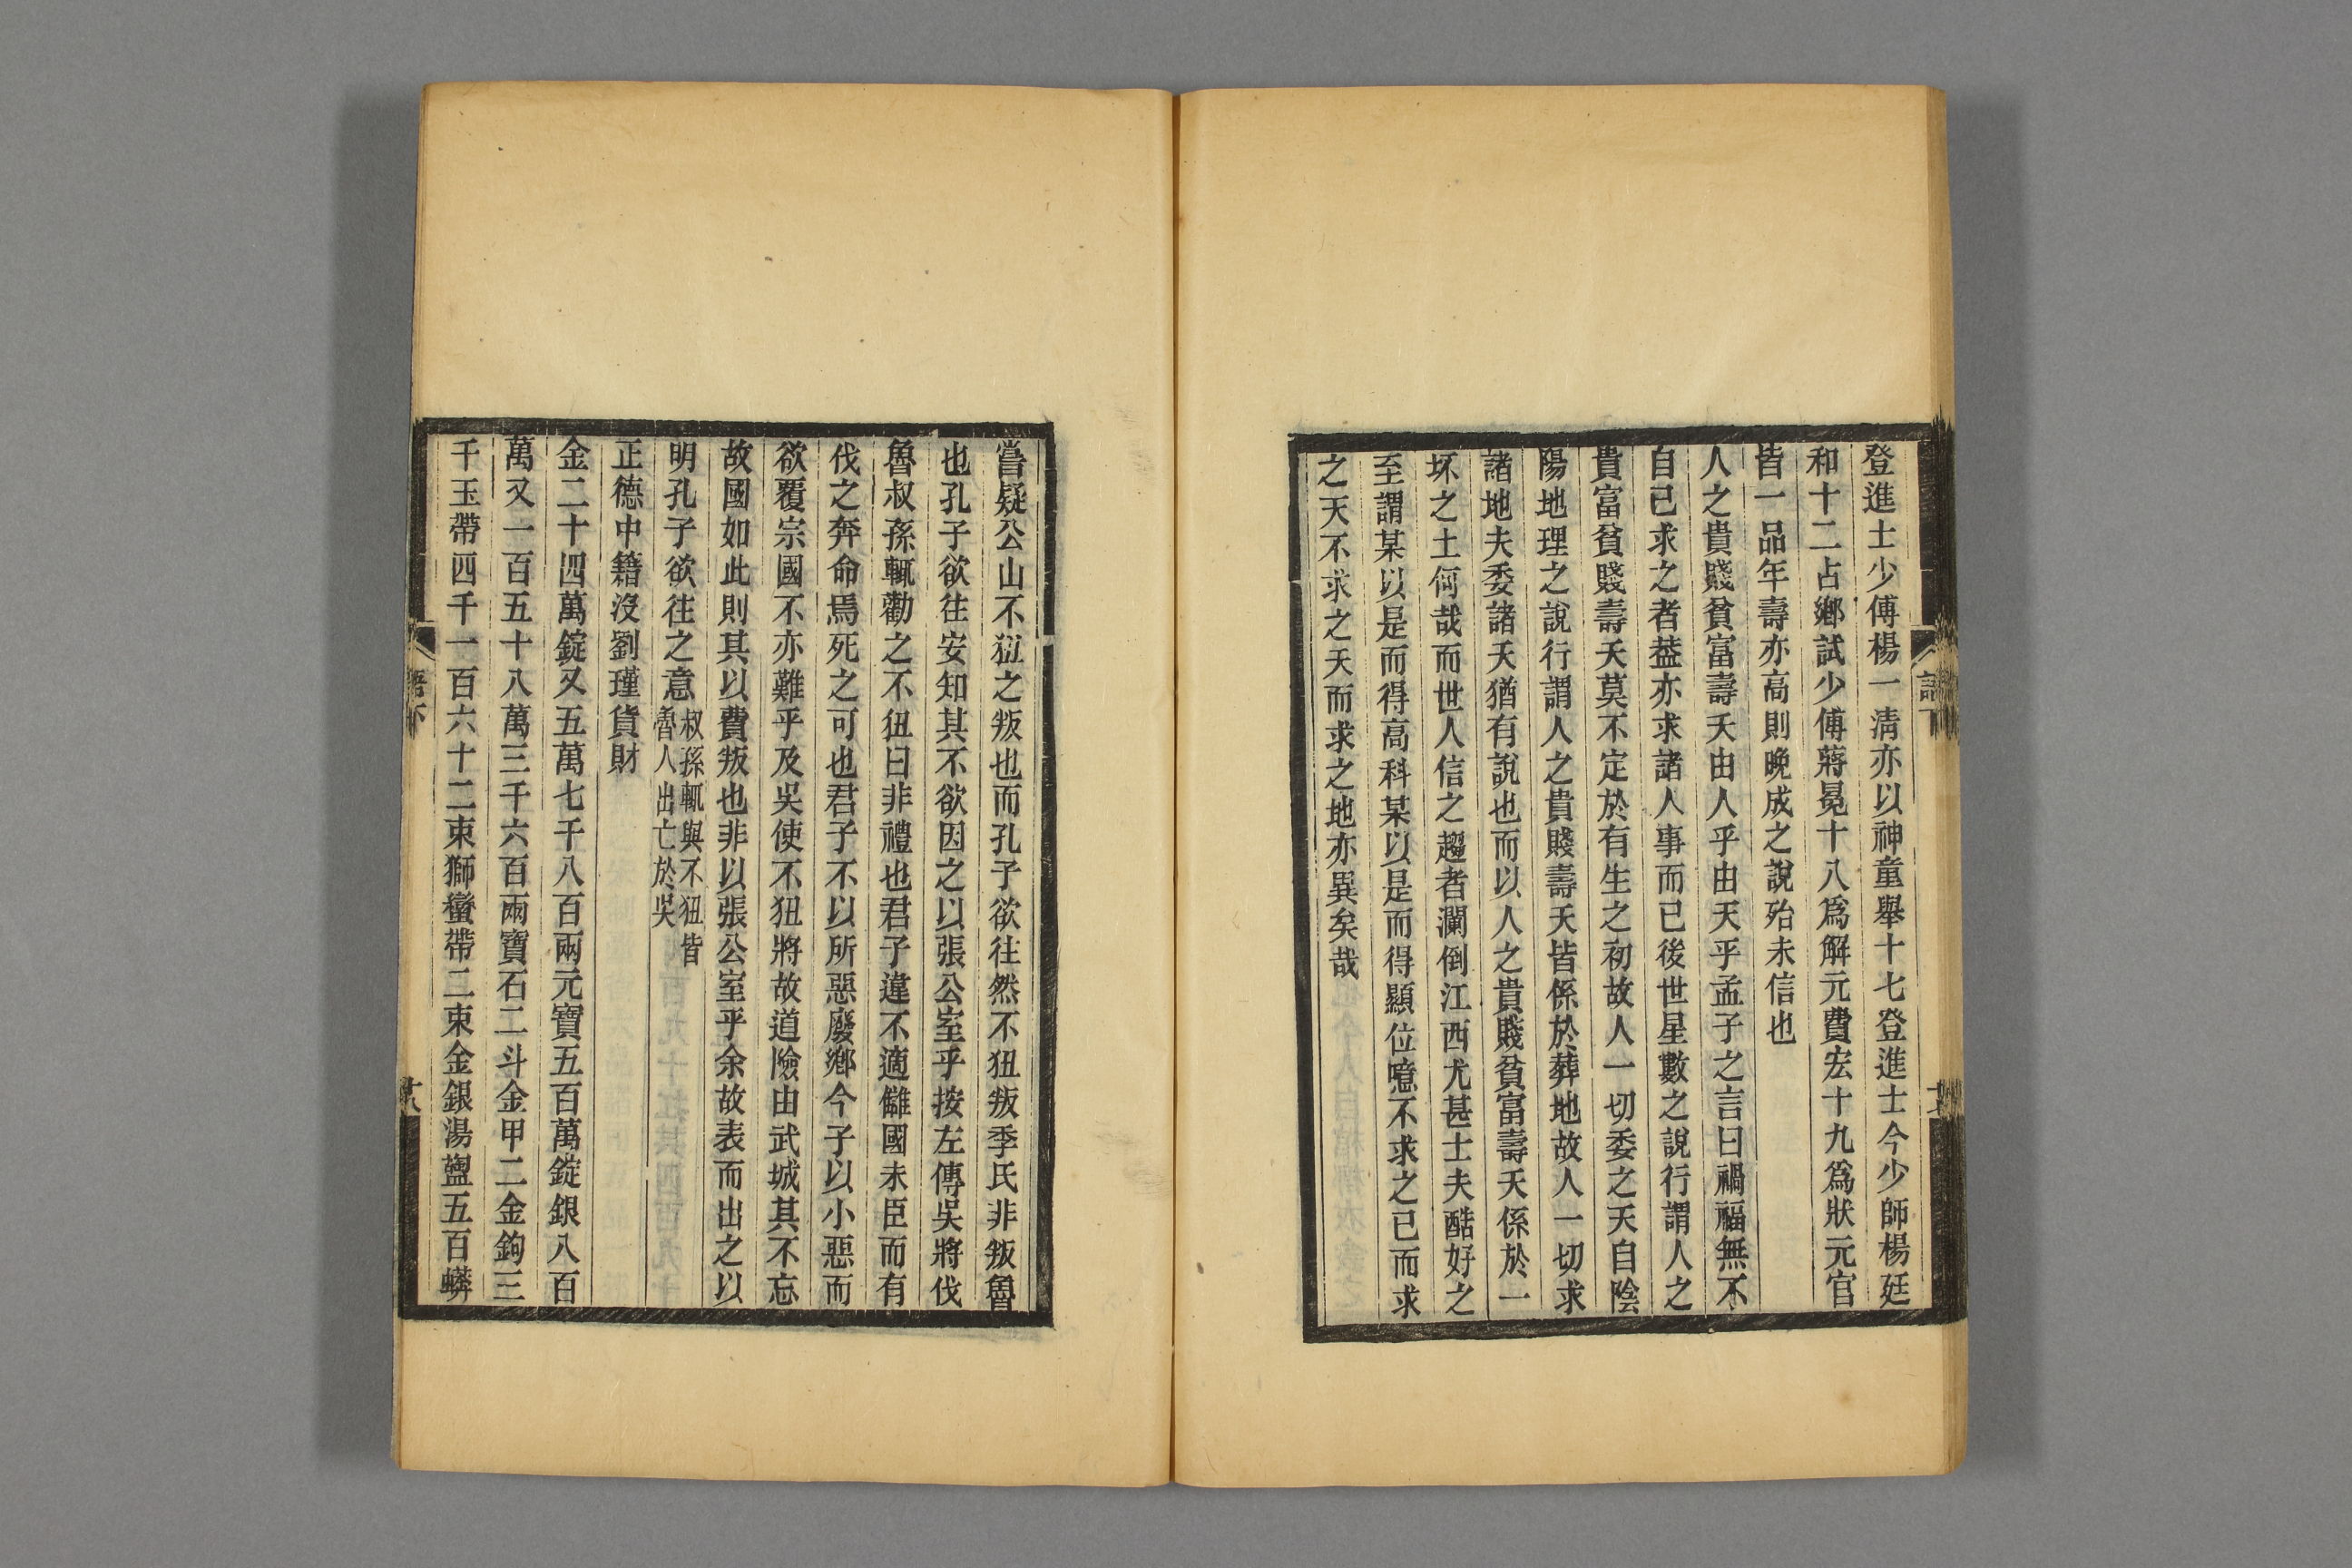 登進士少傅楊一清亦以神童舉十七登進士今少師楊廷
和十二占鄉試少傅蔣冕十八爲解元費宏十九爲狀元官
皆一品年壽亦高則晚成之說殆未信也
人之貴賤貧富壽夭由人乎由天乎孟子之言曰禍福無不
自已求之者葢亦求諸人事而已後世星數之說行謂人之
貴富貧賤壽夭莫不定於有生之初故人一切委之天自陰
陽地理之說行謂人之貴賤壽夭皆係於葬地故人一切求
諸地夫委諸天猶有說也而以人之貴賤貧富壽夭係於一
坏之土何哉而世人信之趨者瀾倒江西尤甚士夫酷好之
至謂某以是而得高科某以是而得顯位噫不求之已而求
之天不求之天而求之地亦異矣哉
嘗疑公山不狃之叛也而孔子欲往然不狃叛季氏非叛魯
也孔子欲往安知其不欲因之以張公室乎按左傳吳將伐
魯叔孫輒勸之不狃曰非禮也君子違不適讎國未臣而有
伐之奔命焉死之可也君子不以所惡廢鄉今子以小惡而
欲覆宗國不亦難乎及吳使不狃將故道險由武城其不忘
故國如此則其以費叛也非以張公室乎余故表而出之以
明孔子欲往之意叔孫輒與不狃皆
魯人出亡於吳
正德中籍沒劉瑾貨財
金二十四萬錠又五萬七千八百兩元寶五百萬錠銀八百
萬又一百五十八萬三千六百兩寶石二斗金甲二金鉤三
千玉帶四千一百六十二束獅蠻帶二束金銀湯盥五百蟒
語下